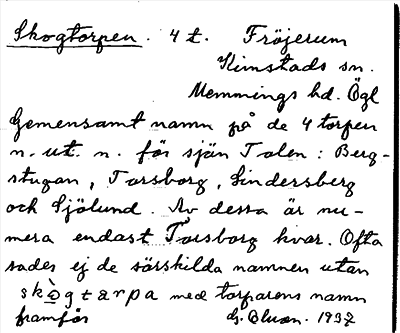 Skogtorpen. 4 t. Fröjerum
Kimstads sn.
Memmings hd. Ögl
Gemensamt namn på de 4 torpen
n. ut. n. för sjön Tolen: Berg-
stugan, Torsborg, Lindersberg
och Sjölund. Av dessa är nu-
mera endast Torsborg kvar. Ofta
sades ej de särskilda namnen utan
skògtarpa med torparens namn
framför G. 1937